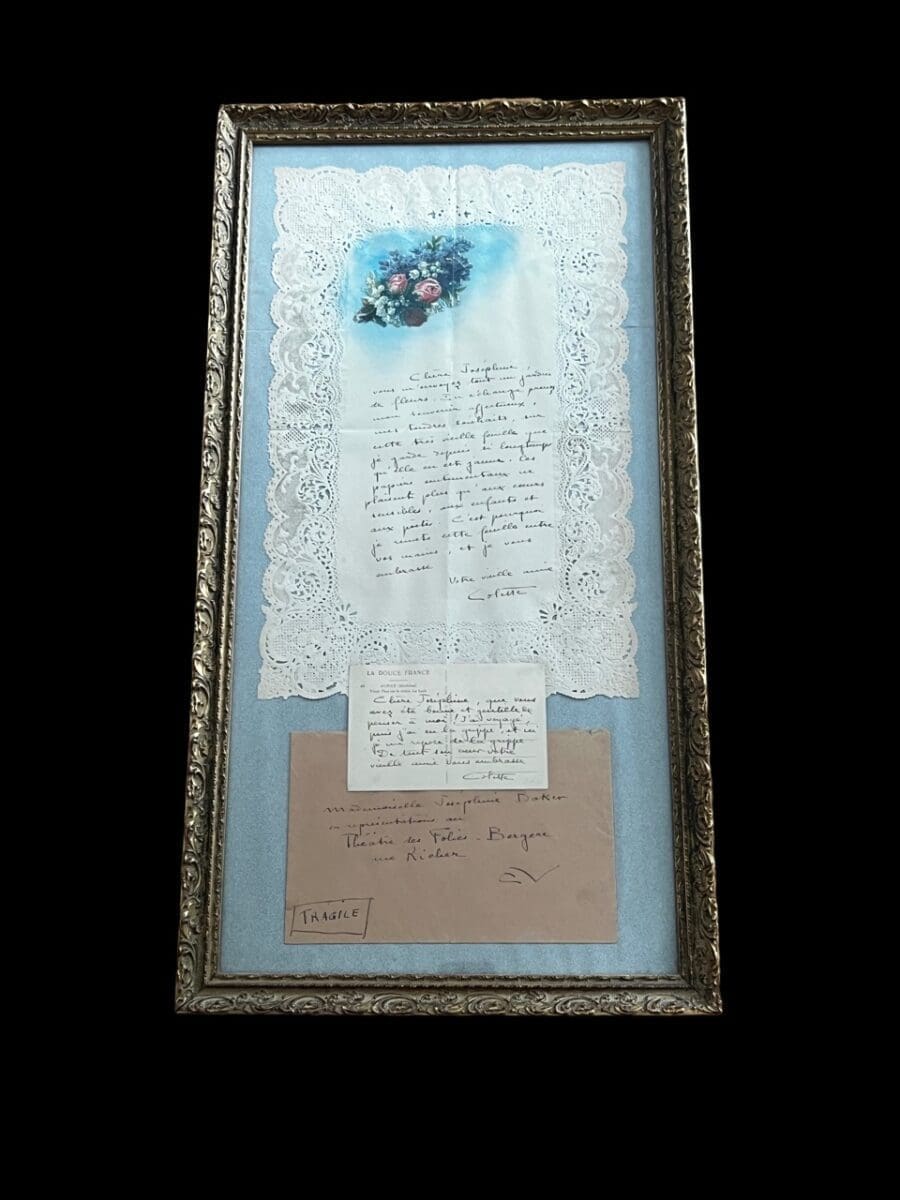 Chère Joséphine,
vous m'envoyez tout un jardin
de fleurs. En échange prenez
mon souvenir affectueux,
mes tendres souhaits, sur
cette très vieille feuille que
je garde depuis si longtemps
qu'elle en est jaunie. Ces
papiers sentimentaux ne
plaisent plus qu'aux cœurs
sensibles, aux enfants et
aux poètes. C'est pourquoi
je remets cette feuille entre
vos mains, et je vous
embrasse
Votre vieille amie
Colette
LA DOUCE FRANCE
Chère Joséphine, que vous
avez été bonne et gentille de
penser à moi! J'ai voyagé,
puis j'ai eu la grippe, et ici
je me repose de la grippe
De tout son cœur votre
vieille amie vous embrasse
Colette
Mademoiselle Joséphine Baker
en représentations au
Théâtre des Folies-Bergère
rue Richer
EV
FRAGILE